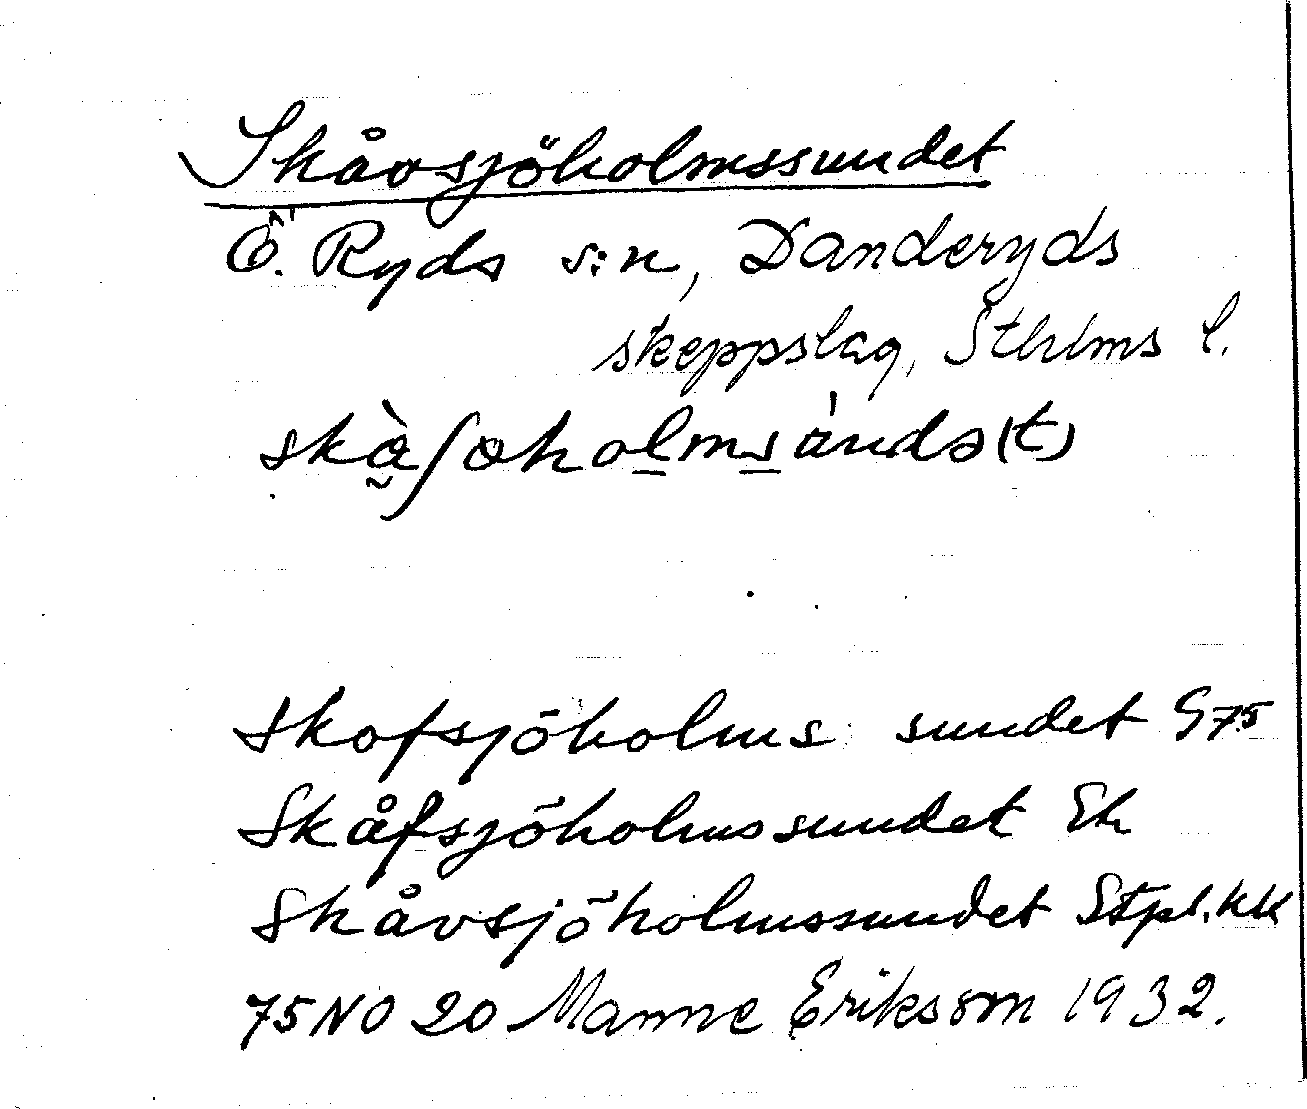 Skåvsjöholmssundet
Ö. Ryds s:n, Danderyds
skeppslag, Sthlms l.
skofsjöholms sundet G75
Skåfsjöholmssundet Ek
Skåvsjöholmssundet Stpl. KK
75 NO 20 Manne Eriksson 1932.